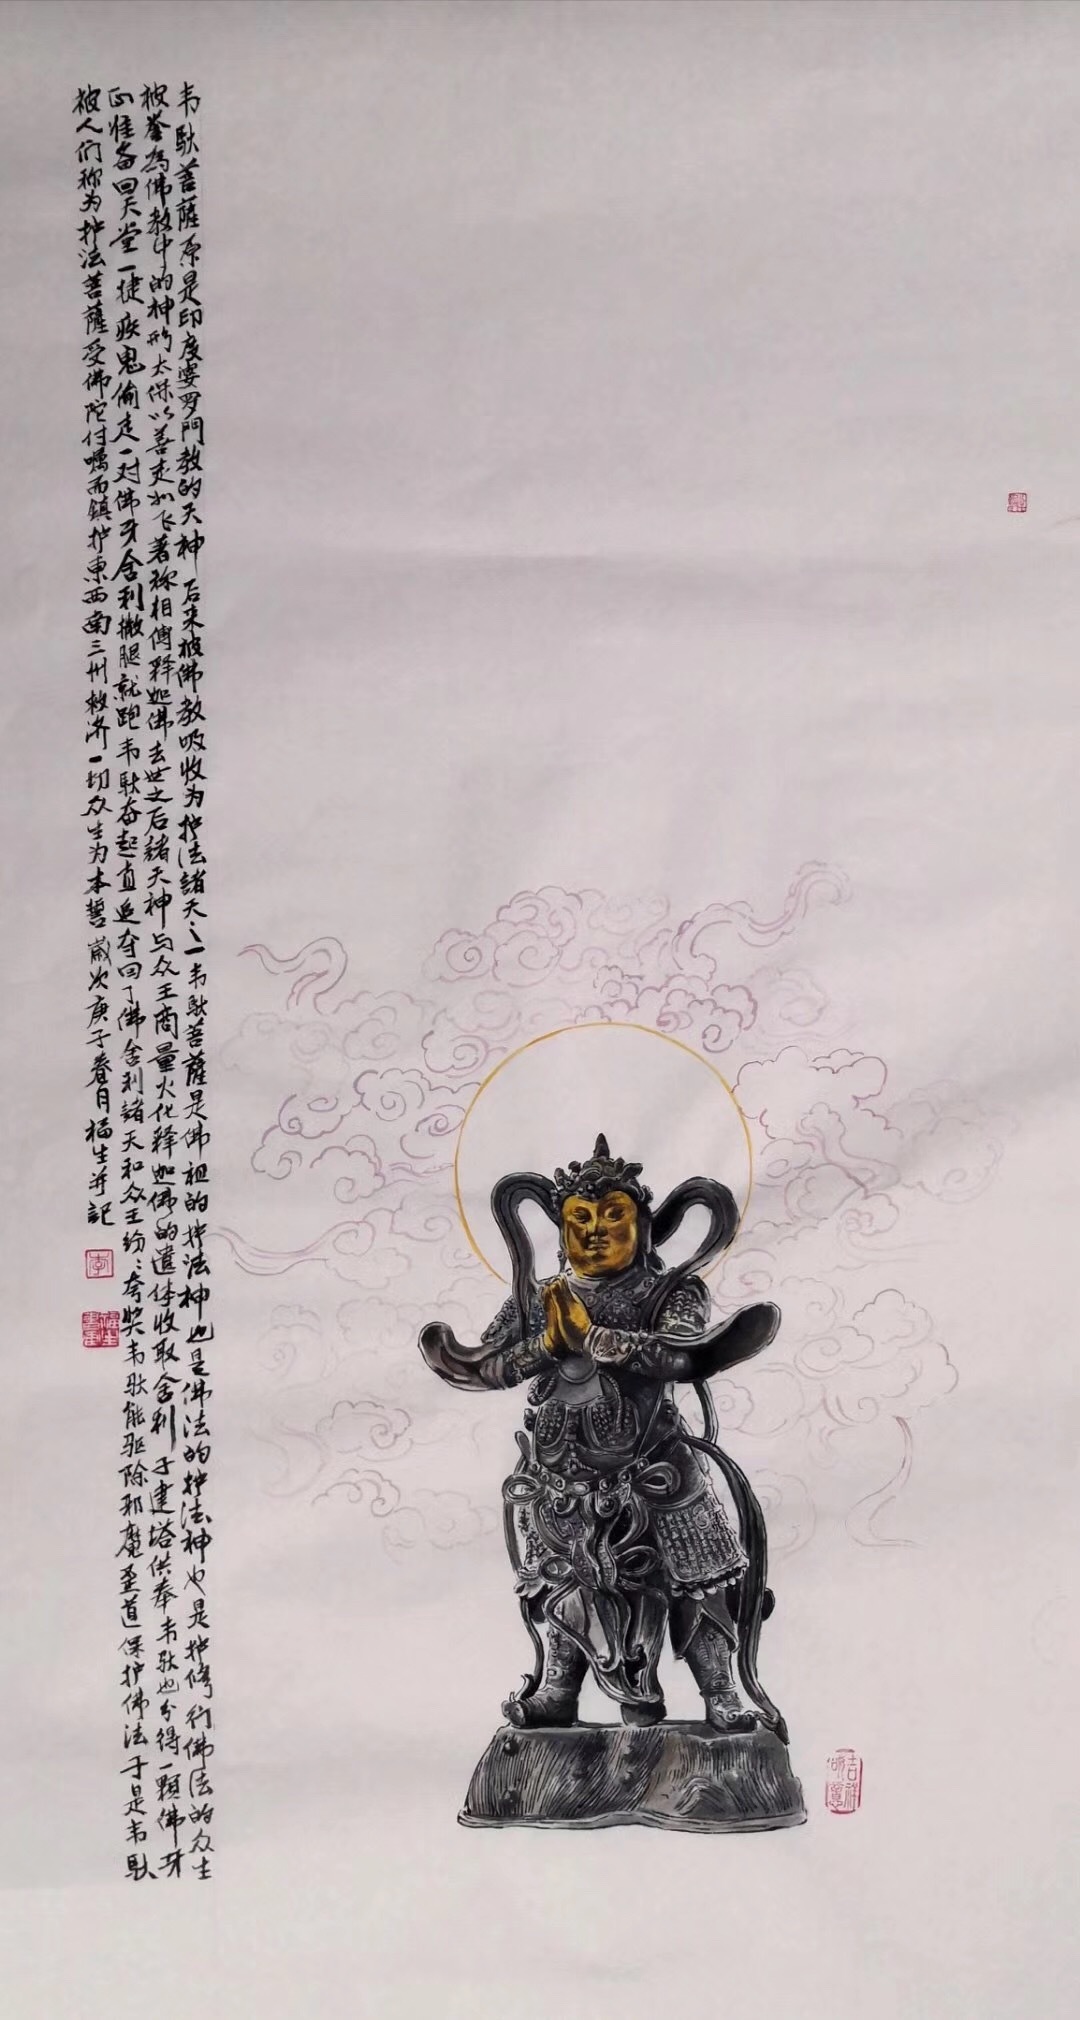 韦馱菩薩原是印度婆罗門教的天神后来被佛教吸收为护法諸天之一韦馱菩薩是佛祖的护法神也是佛法的护法神也是护修行佛法的众生
被誉為佛教中的神形太保以善走如飞著称相傳释迦佛去世之后諸天神与众王商量火化释迦佛的遺体收取舍利于建塔供奉韦馱也分得一顆佛牙
正准备回天堂一捷疾鬼偷走一对佛牙舍利撒腿就跑韦馱奋起直追夺回了佛舍利諸天和众王纷纷夸奖韦馱能驱除邪魔歪道保护佛法于是韦馱
被人们称为护法菩薩受佛陀付嘱而鎮护東西南三州救济一切众生为本誓歲次庚子春月福生并記
李
福生書画
吉祥如意